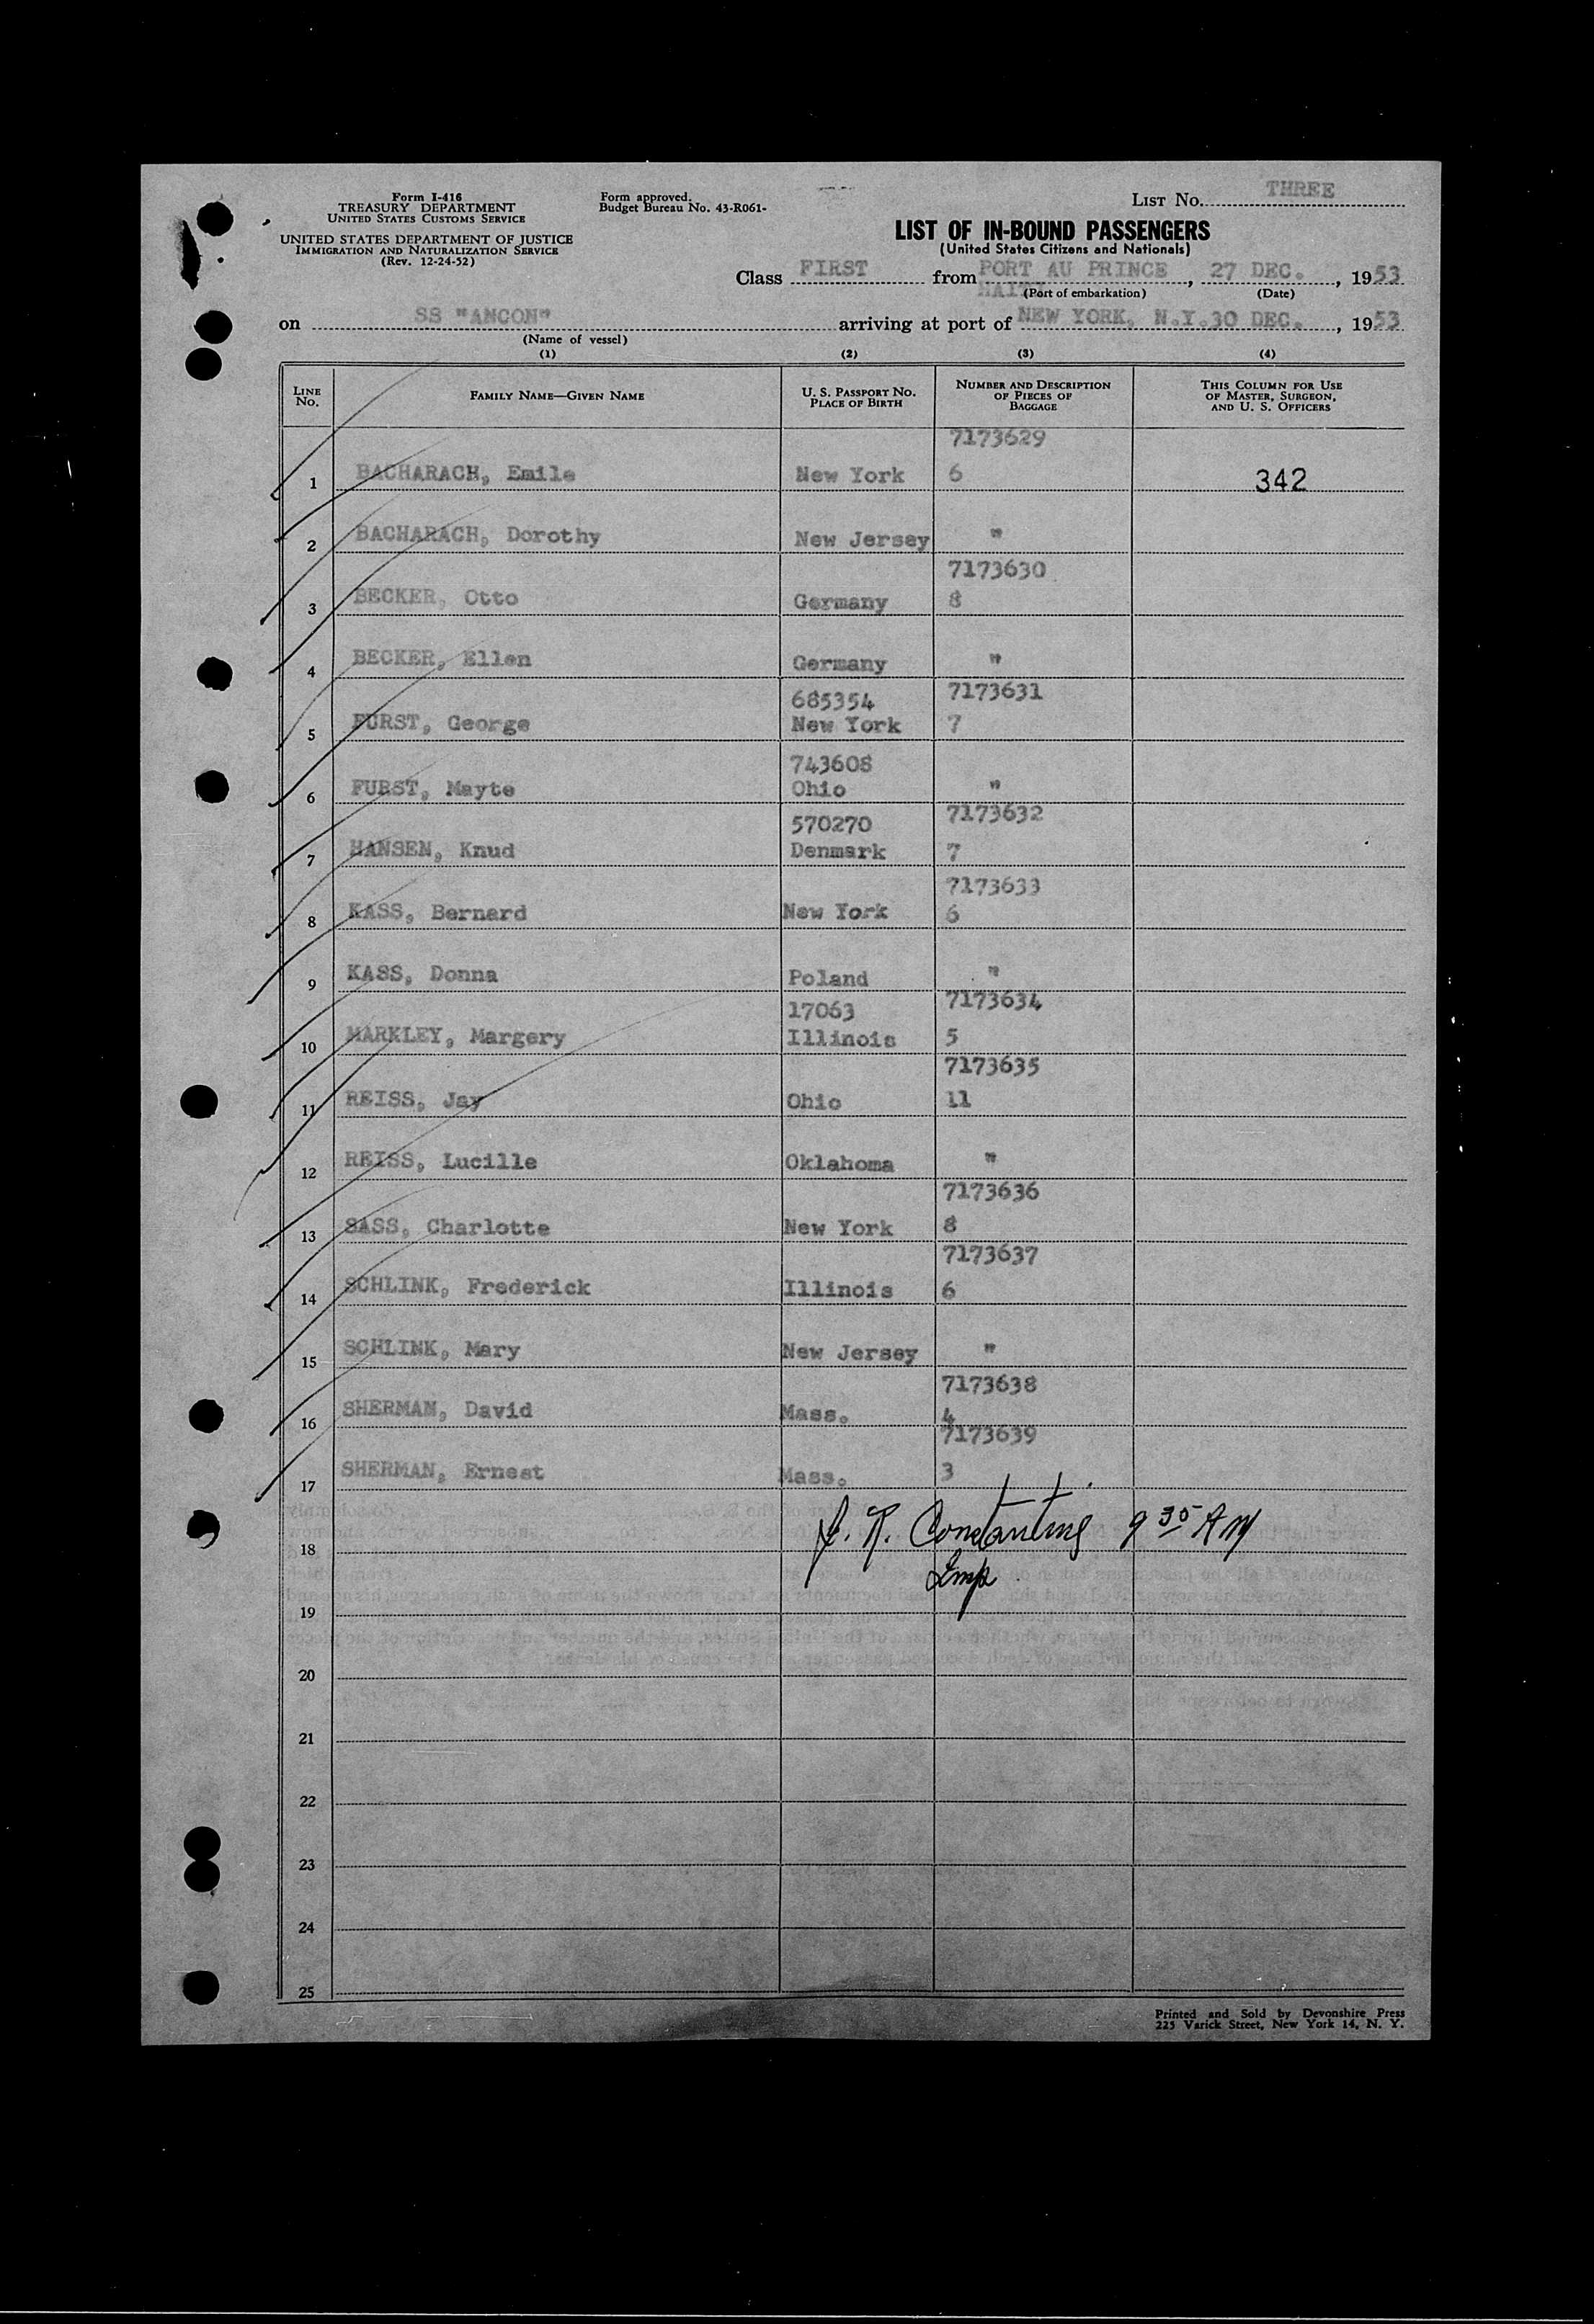 Form I-416
TREASURY DEPARTMENT
UNITED STATES CUSTOMS SERVICE
UNITED STATES DEPARTMENT OF JUSTICE
IMMIGRATION AND NATURALIZATION SERVICE
(Rev. 12-24-52)
Form approved.
Budget Bureau No. 43-R061-
LIST No. THREE
LIST OF IN-BOUND PASSENGERS
(United States Citizens and Nationals)
Class FIRST from PORT AU PRINCE, 27 DEC., 1953
HAITI (Port of embarkation) (Date)
on SS "ANCON" arriving at port of NEW YORK, N.Y. 30 DEC., 1953
(Name of vessel)
(1) (2) (3) (4)
LINE No. FAMILY NAME—GIVEN NAME U. S. PASSPORT No. PLACE OF BIRTH NUMBER AND DESCRIPTION OF PIECES OF BAGGAGE THIS COLUMN FOR USE OF MASTER, SURGEON, AND U. S. OFFICERS
7173629
1 BACHARACH, Emile New York 6 342
2 BACHARACH, Dorothy New Jersey "
7173630
3 BECKER, Otto Germany 8
4 BECKER, Ellen Germany "
685354 7173631
5 FURST, George New York 7
743608
6 FURST, Mayte Ohio "
570270 7173632
7 HANSEN, Knud Denmark 7
7173633
8 KASS, Bernard New York 6
9 KASS, Donna Poland "
17063 7173634
10 MARKLEY, Margery Illinois 5
7173635
11 REISS, Jay Ohio 11
12 REISS, Lucille Oklahoma "
7173636
13 SASS, Charlotte New York 8
7173637
14 SCHLINK, Frederick Illinois 6
15 SCHLINK, Mary New Jersey "
7173638
16 SHERMAN, David Mass. 4
7173639
17 SHERMAN, Ernest Mass. 3
R. Constantine 9 35 AM
18
Imp
19
20
21
22
23
24
25
Printed and Sold by Devonshire Press
225 Varick Street, New York 14, N. Y.